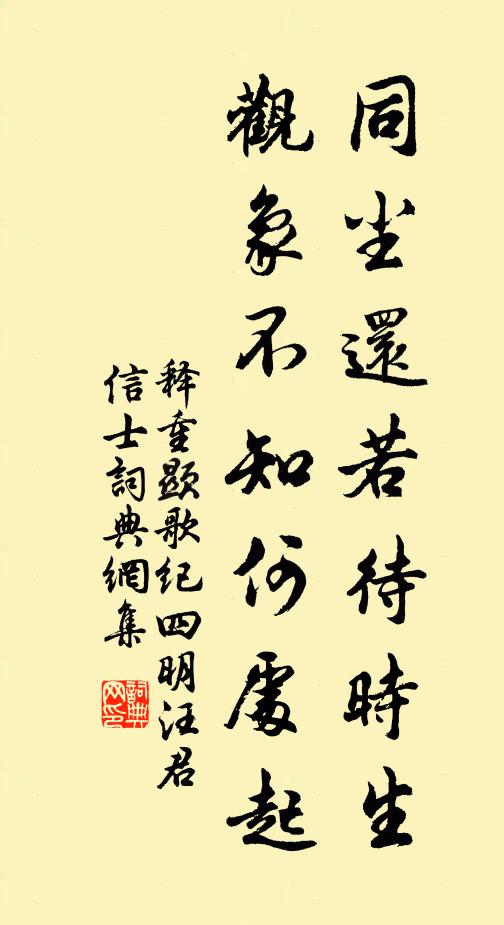 同尘還若待時生
觀象不知何處起
释重顯歌纪四明汪君
信士詞典網集
詞典
网印